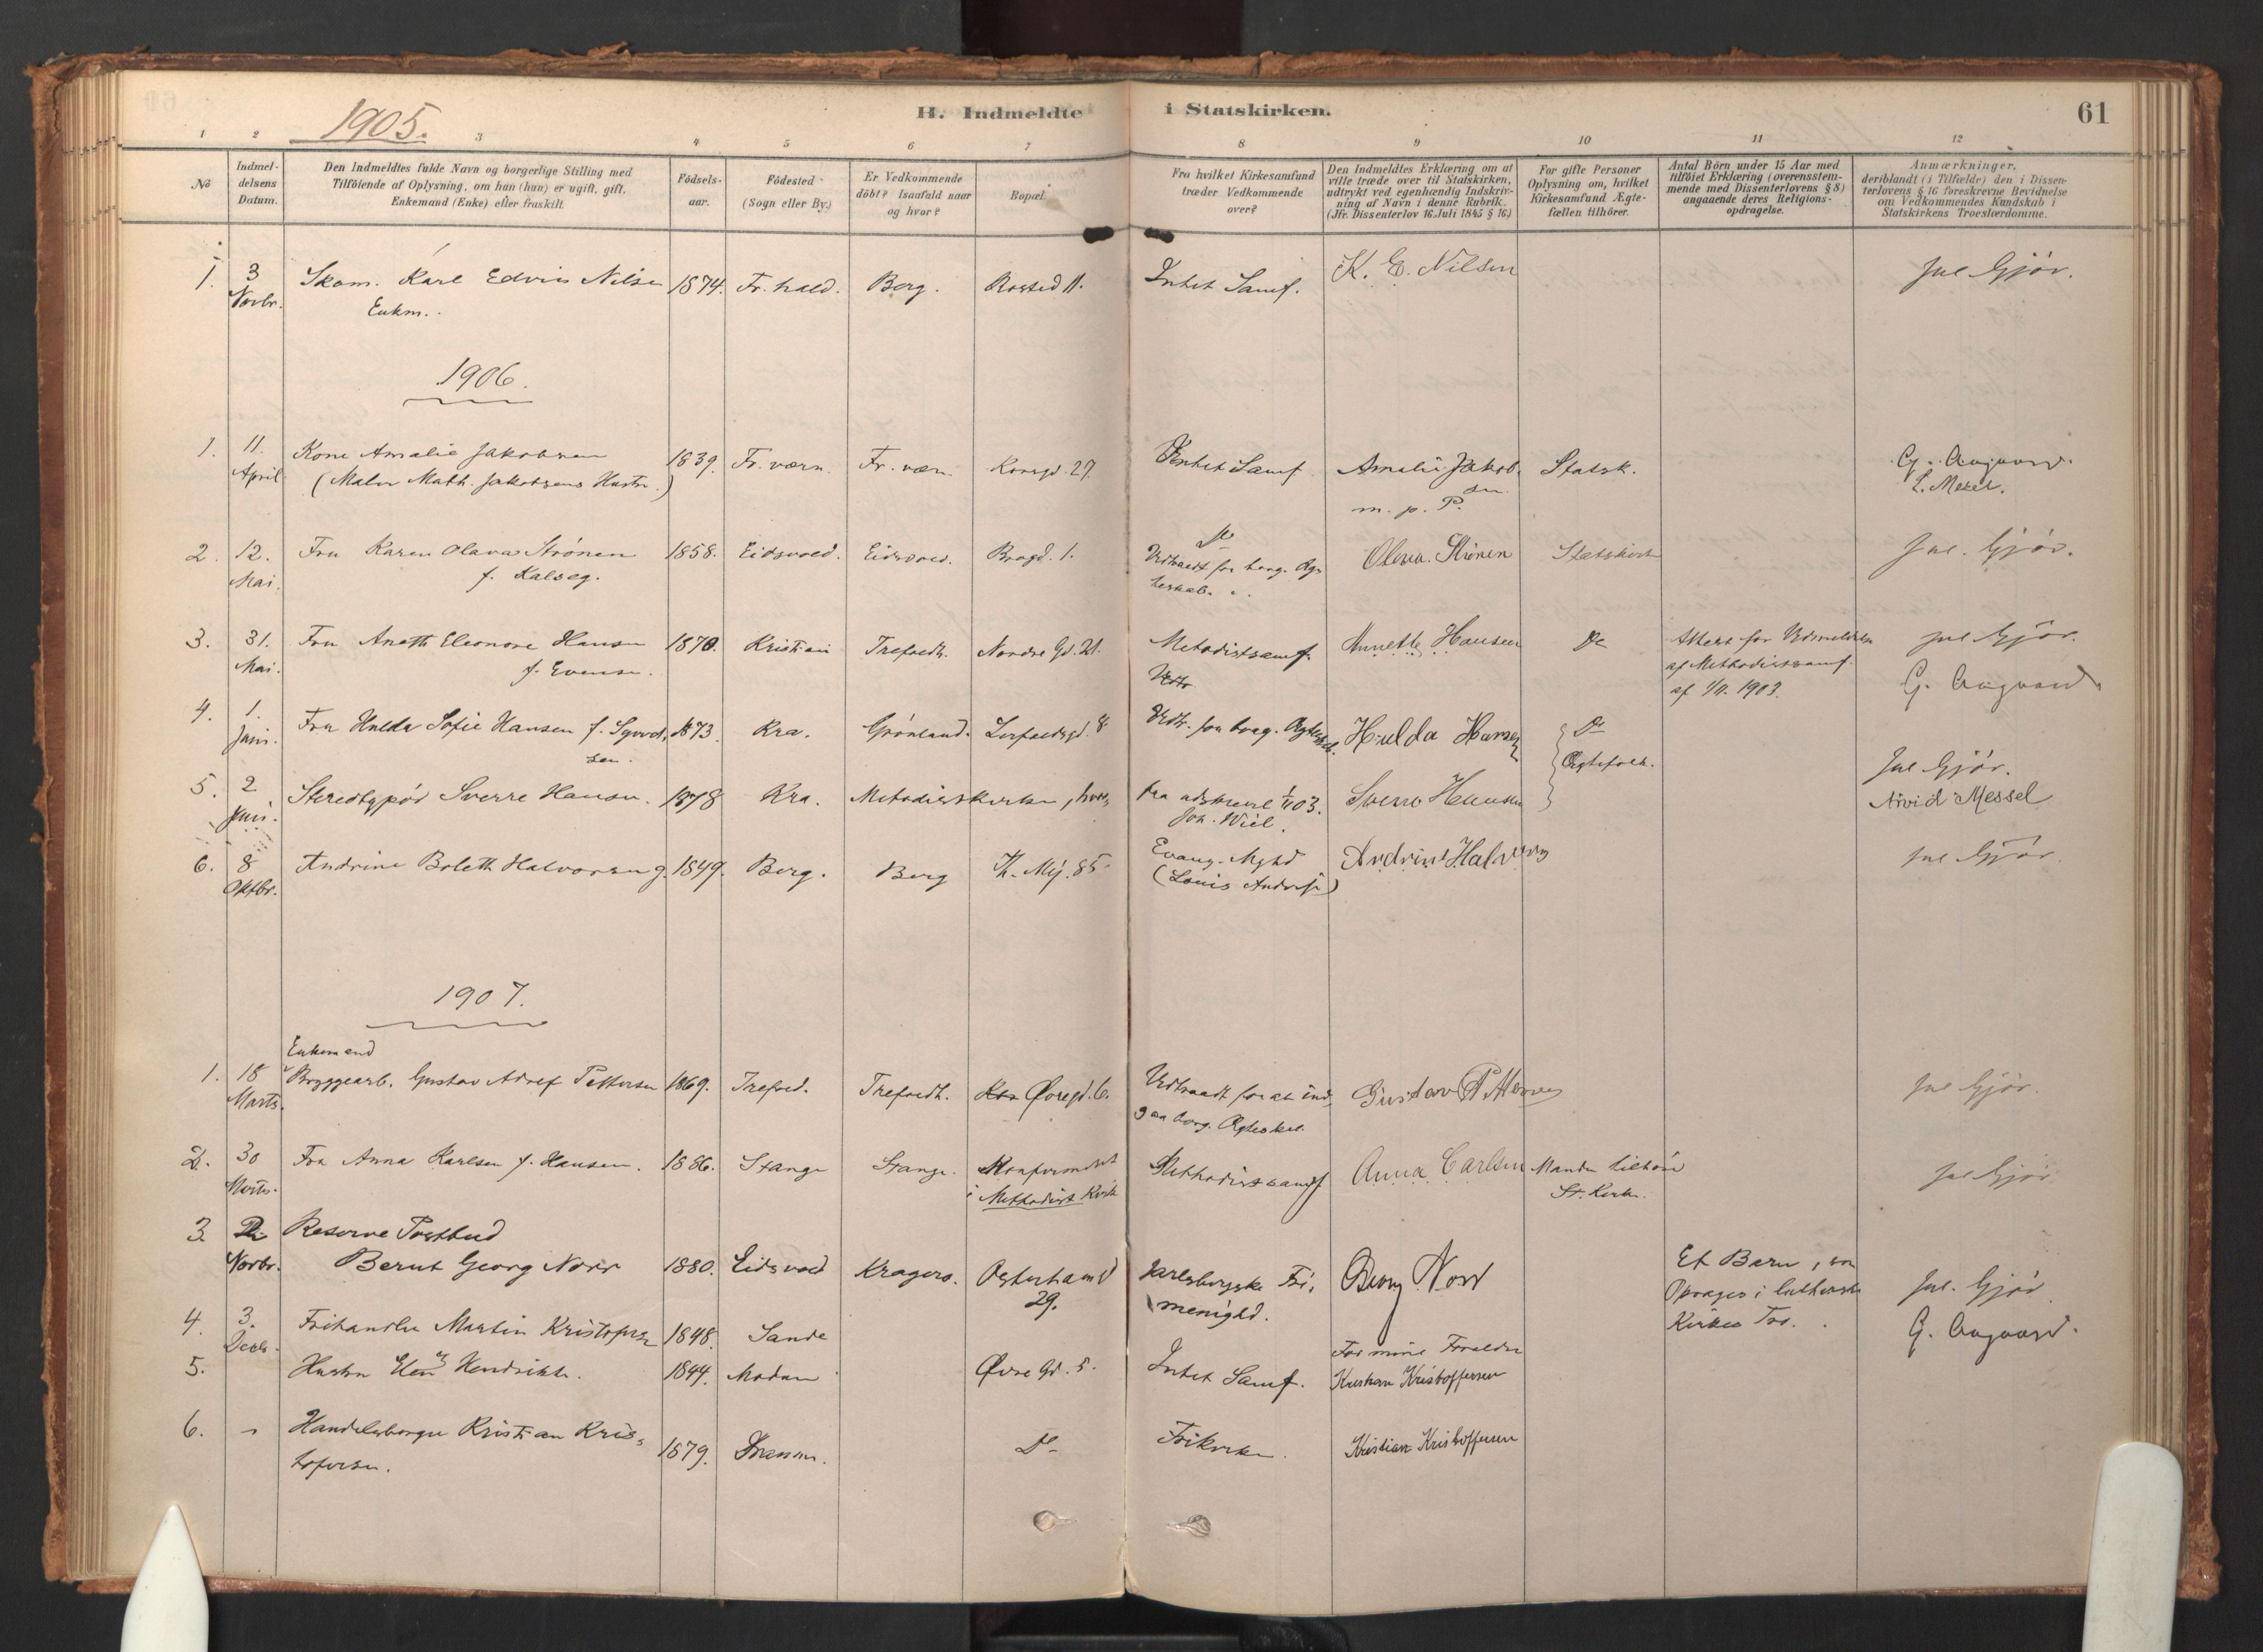 1905.
H. Indmeldte i Statskirken.
61
1 2 3 4 5 6 7 8 9 10 11 12
No
Indmeldelsens Datum.
Den Indmeldtes fulde Navn og borgerlige Stilling med
Tilføiende af Oplysning, om han (hun) er ugift, gift,
Enkemand (Enke) eller fraskilt.
Fódsels-
aar.
Fódested
(Sogn eller By.)
Er Vedkommende
döbt? Isaafald naar
og hvor?
Bopæl.
Fra hvilket Kirkesamfund
træder Vedkommende
over?
Den Indmeldtes Erklæring om at
ville træde over til Statskirken,
udtrykt ved egenhændig Indskriv-
ning af Navn i denne Rubrik.
(Jfr. Dissenterlov 16. Juli 1845 § 16.)
For gifte Personer
Oplysning om, hvilket
Kirkesamfund Ægte-
fællen tilhörer.
Antal Börn under 15 Aar med
tilföiet Erklæring (overensstem-
mende med Dissenterlovens § 8)
angaaende deres Religions-
opdragelse.
Anmærkninger,
deriblandt (i Tilfælde) den i Dissen-
terlovens § 16 foreskrevne Bevidnelse
om Vedkommendes Kundskab i
Statskirkens Troeslærdomme.
1. 3 Novbr. Skom. Karl Edvin Nilsen 1874. Fr.hald. Berg. Rosted 11. Intet Samf. K. E. Nilsen Jul Gjör.
Enkm.
1906.
1. 11. April Kone Amalie Jakobsen 1839. Fr.værn. Fr.værn. Kongsgd. 27. Intet Samf. Amalie Jakobsen Statsk. G. Aagaard.
(Maler Math. Jakobsens Hustru.) m. p. P.
2. 12. Mai. Fru Karen Olava Strönen 1858. Eidsvold. Eidsvold. 1. Olava Strönen Statskirk Jul. Gjör.
f. Kalseg. Udtraadt for borg. Ægteskab.
3. 31. Mai. Fru Aneth Eleonore Hansen 1870. Kristian Trefoldh. Nordre Gd. 21. Metodistsamf. Annette Hansen Do Attest for Udmeldelse Jul Gjör.
f. Evensen. af Methodistsamf.
af 1/11. 1903. G. Aagaard
4. 1. Juni. Fru Hulda Sofie Hansen f. 1873. Kra. Grønland. 8 Udtr. for borg. Hulda Hansen Do
Ægtefolk. Jul Gjör.
5. 2 Juni. Stereotypör Sverre Hansen. 1878 Kra. Metodistkirken, Sverre Hansen Arvid Messel
fra udskrevet 1/11 03.
6. 8 Oktbr. Andrine Boleth Halvorsen g. 1849. Berg. Berg Th. Mej. 85. Evang. Mghd Jul Gjör
1907.
Enkemand
1. 18 Marts. Bryggearb. Gustav Adolf Pettersen 1869. Trefold. Trefoldh. Øvregd. 6. Udtraadt for at ind- Gustav Pettersen Jul Gjör.
gaa borg. Ægteskab.
2. 30 Marts. Fru Anna Karlsen f. Hansen. 1886. Stange Stange. Konfirmeret Methodistsamf Anna Carlsen Manden tilhører Jul Gjör
i Methodist Kirke St. Kirke.
3. Novbr. Reserve Postbud
Bernt Georg Norr 1880. Eidsvold Kragerø. 29. Jarlsbergske Fri- Georg Norr Et Barn, som
menighd. opdrages i lutherske Jul. Gjör
Kirkes Tro. G. Aagaard.
4. 3. Decbr. Frihandler Martin Kristofersen 1848. Sande For mine Forældre
5. Hustru Elen Hendrikke. 1844. Modum Øvre Gd. 5. Intet Samf. Kristian Kristoffersen
6. Handelsborger Kristian Kris- 1879. Dramm. Do Frikirken. Kristian Kristoffersen
tofersen.